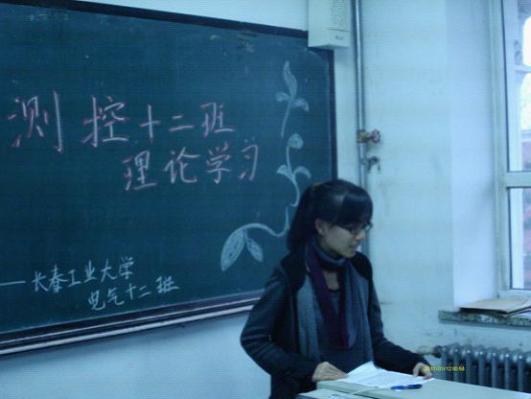 测控十二班
理论学习
——长春工业大学
电气十二班